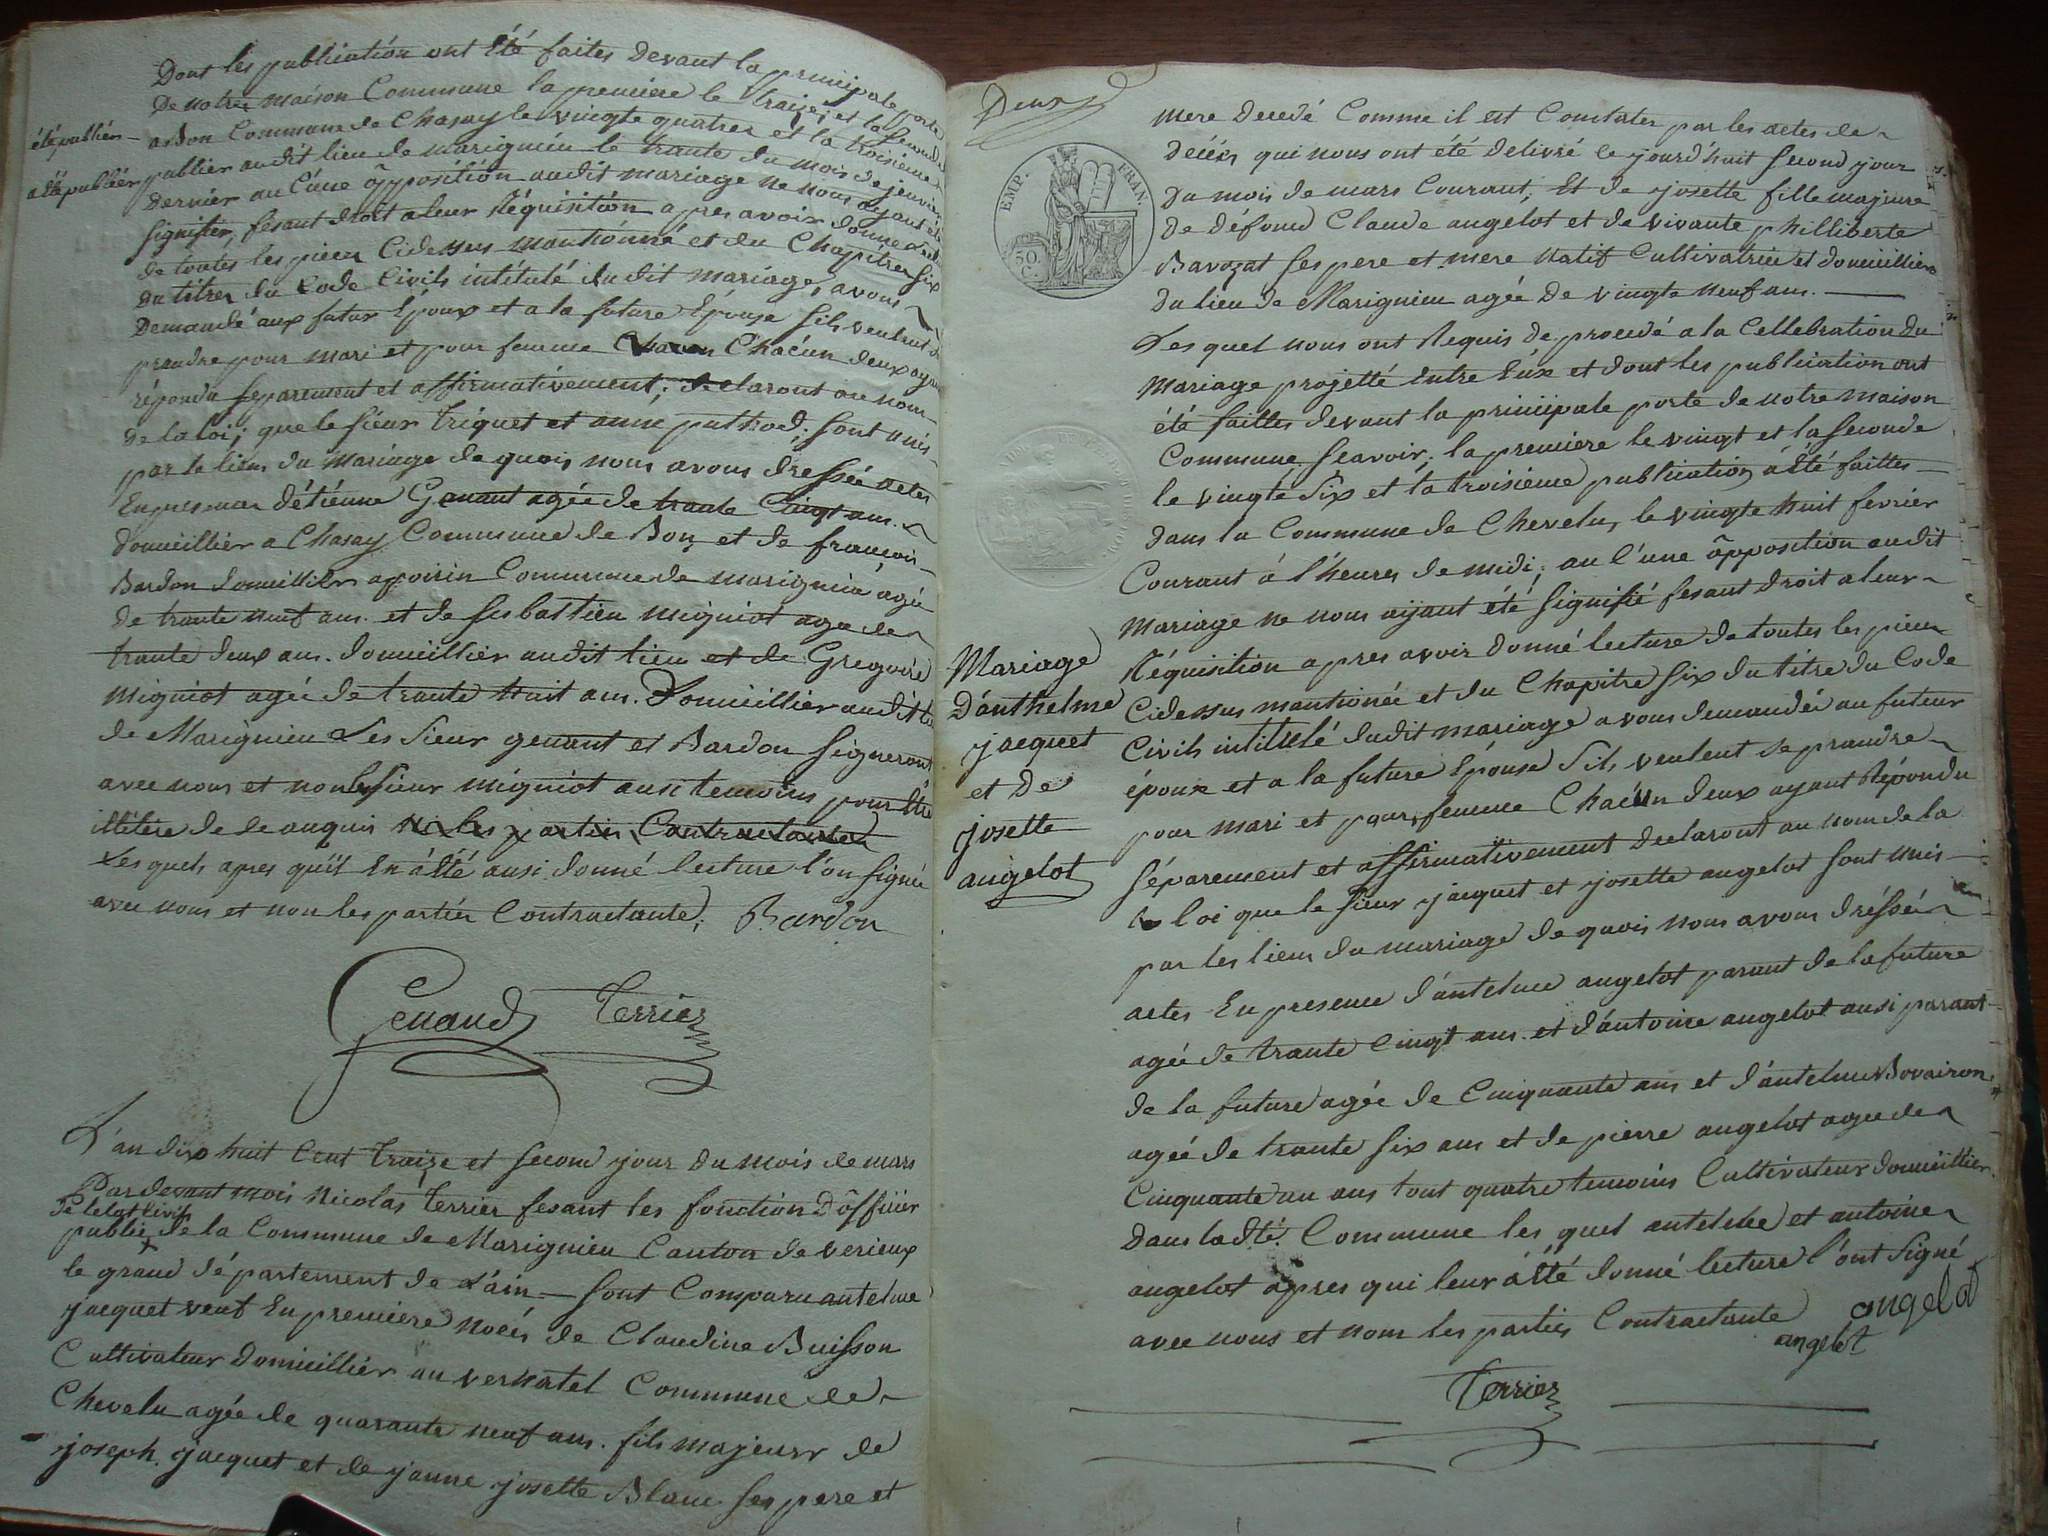 Dont les publication ont été faites devant la principale porte
de notre maison Commune la premiere le traize, et la seconde
été publiér
a Bon Commune de Chasay le vingte quatrer et la troisiéme
a été publiér
publier audit lieu de marignieu le trante du mois de jenvier
dernier au l'une ôpposition audit mariage ne nous ayant été
signifier, fesant droit a leur Réquisition apres avoir donné
de toutes les pieces Cidessus mantionné et du Chapitre six
du titre du Code Civils intitulé du dit mariage, avons
Demandé aux futur Epoux et a la future Epouse sils veulent se
prandre pour mari et pour femme Chacun deux ayant
répondu séparement et affirmativement; declaront au nom
de la loi; que le sieur Triquet et anne puthod, sont unis
par le lien du mariage de quois nous avons dressée actes
En presence détiénne Genant agée de trante Cinqt ans.
domicillier a Chasay Commune de Bon et de francois
Bardon domicillier apoisin Commune de marignieu agée
de trante neuf ans. et de sebastien migniot agee de
trante deux ans. domicillier audit lieu et de Gregoire
migniot agée de trante huit ans. Domicillier audit lieu
de Marignieu Les sieur genant et Bardon signeront
avec nous et non les sieur migniot ausi temoins pour être
illétére de ce anquis ni les partier Contractantes
Les quels apres qu'il En á été ausi donné lecture l'on signée
avec nous et non les partiér Contractante. Bardon
Genand Terrier
L'an dix huit Cent traize et second jour du mois de mars
Pardevant mois Nicolas Terrier fesant les fonction Dôfficier
de letat Civil
public de la Commune de Marignieu Canton de verieux
le grand département de L'ain — sont Comparu antelme
jacquet veuf En premiere noés de Claudine Buisson
Cultivateur Domicillier au vernatel Commune de
Chevelu agée de quarante neuf ans. fils majeurr de
joseph jacquet et de janne josette Blanc ses pere et
Deux
EMP. FRAN.
50. C.
mere decedé Comme il est Constater par les actes de
décés qui nous ont été delivré le jourd'huit second jour
du mois de mars Courant; Et de josette fille majeure
de défond Claude angelot et de vivante philliberte
Bavozat ses pere et mere natif Cultivatrice et domicilliere
du lieu de Marignieu agée de vingte neuf ans.
Les quel nous ont Requis de procedé a la Cellebration du
mariage projetté Entre Eúx et dont les publication ont
été failles devant la principale porte de notre maison
Commune. scavoir; la premiere le vingt et la seconde
le vingte six et la troisieme publication á été failles
dans la Commune de Chevelu, le vingte huit fevrier
Courant á l'heures de midi; au l'une ôpposition audit
Mariage ne nous aijant été signifié fesant droit a leur
Mariage
D'anthelme
jacquet
et De
josette
angelot
Réquisition apres avoir donné lecture de toutes les pieces
Cidessus mantionée et du Chapitre six du titre du Code
Civils intitulé dudit mariage avons demandée au futeur
époux et a la future Epouse sils veulent se prandre
pour mari et pour femme Chacun deux ayant Répondu
séparement et affirmativement declaront au nom de la
loi que le sieur jacquet et josette angelot sont unis
par les lieus du mariage de quois nous avons dréssée
actes En presence d'antelme angelot parant de la future
agée de trante Cinqt ans. et d'antoine angelot ausi parant
de la future agée de Cinquante ans et d'antelme Bovairon
agée de trante six ans et de pierre angelot agee de
Cinquante un ans tout quatre temoins Cultivateur domicillier
Dans ladté. Commune les quel antelme et antoine
angelot apres qui leur á été donné lecture l'ont signé
avec nous et nom les partiés Contractante angelot
angelot
Terrier